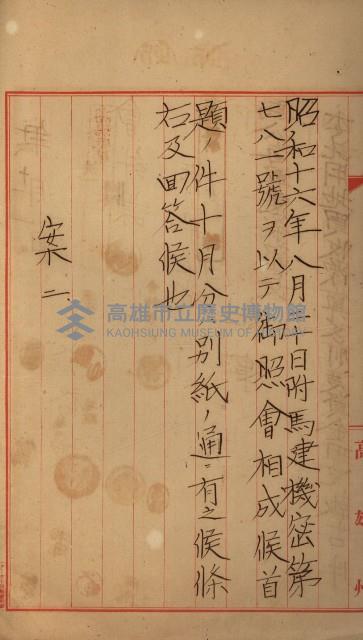 昭和十六年八月二十日附馬建機密第
七八一號ヲ以テ御照會相成候首
題ノ件十月分別紙ノ通ニ有之候條
右及回答候也
案二
高雄州
高雄市立歷史博物館
KAOHSIUNG MUSEUM OF HISTORY